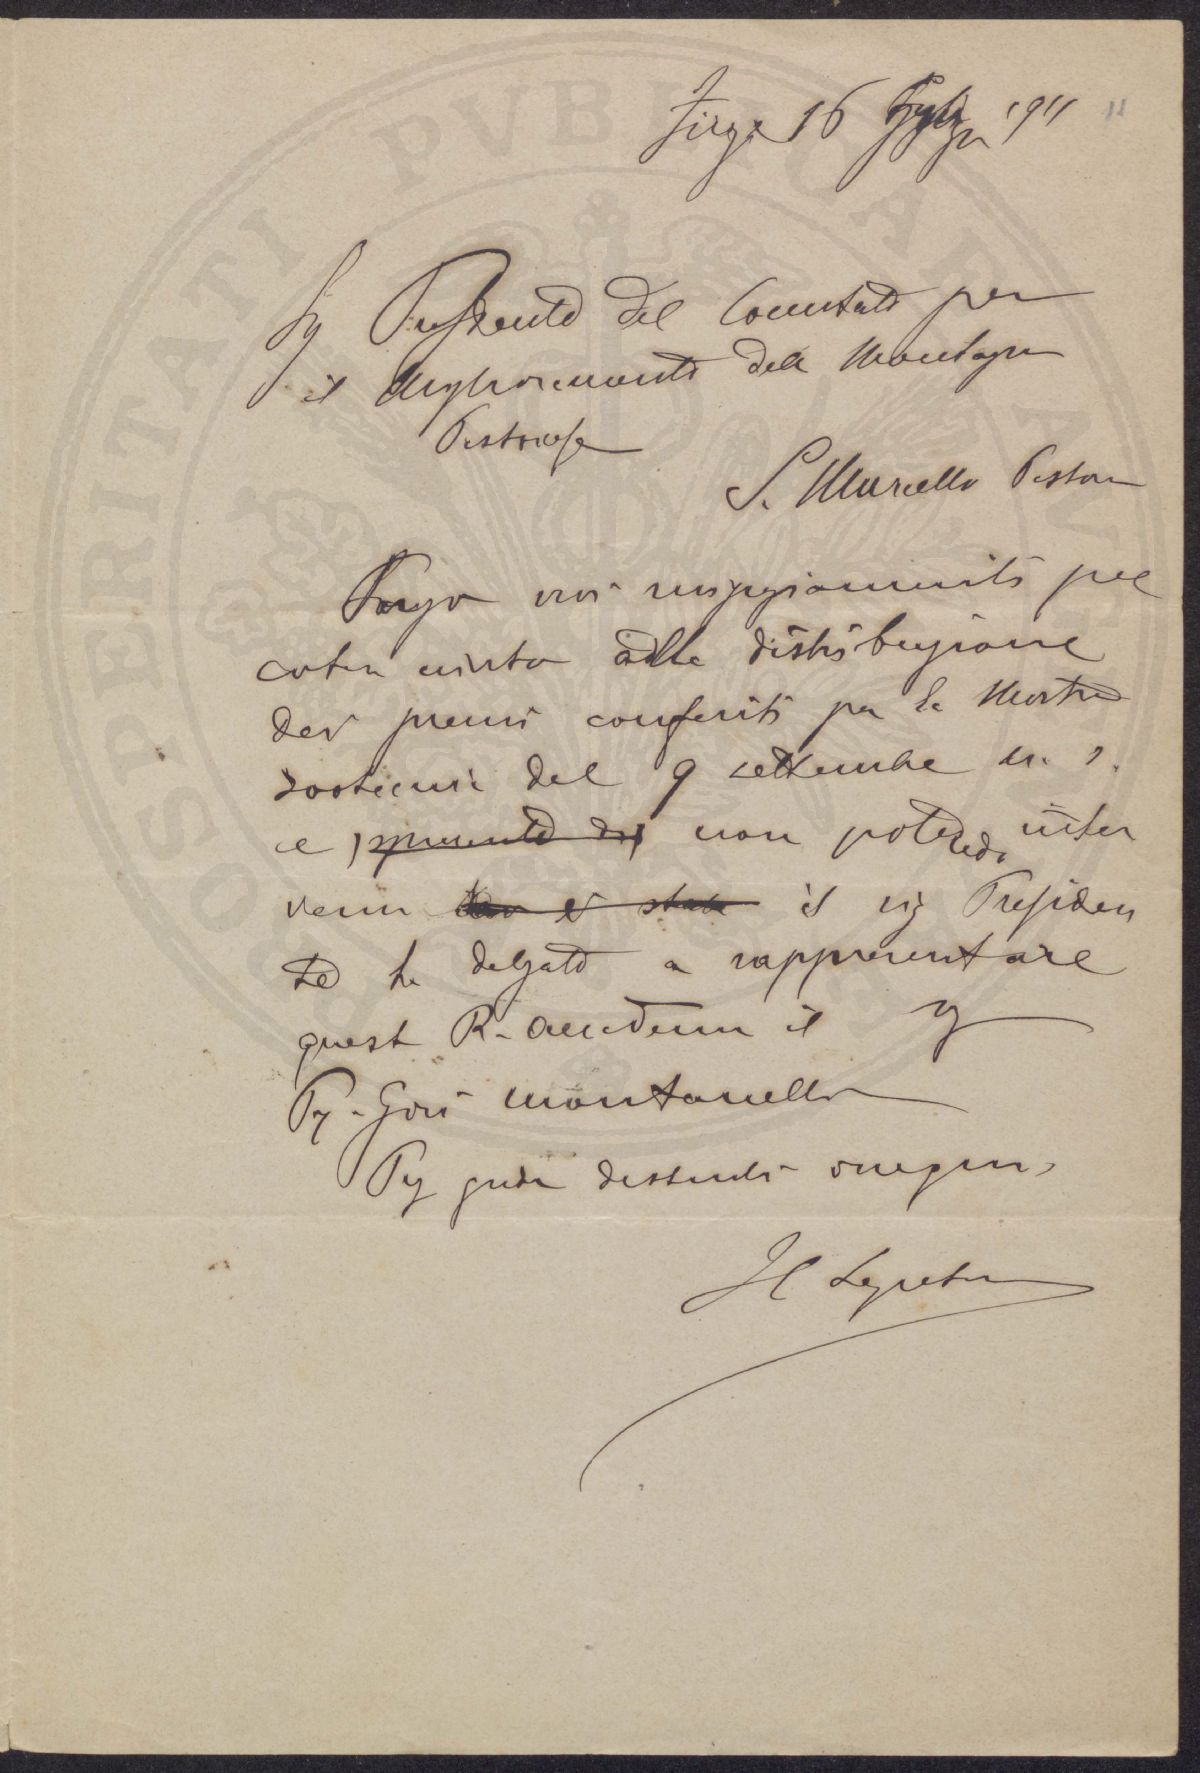 Firze 16 '911 11
Sig Presidente del Comitato per
il Miglioramento della Montagna
Pistoiese
S. Marcello Pistoiese
Porgo vivi ringraziamenti pel
cortese invito alla distribuzione
dei premi conferiti per la Mostra
zootecnica del 9 settembre u. s.
e non potendo inter
venire il sig Presiden
te ha delegato a rappresentare
questa R. Accademia il
Gori Montanelli
ossequi
Il Segretario
PROSPERITATI PVBLICAE AVGENDAE